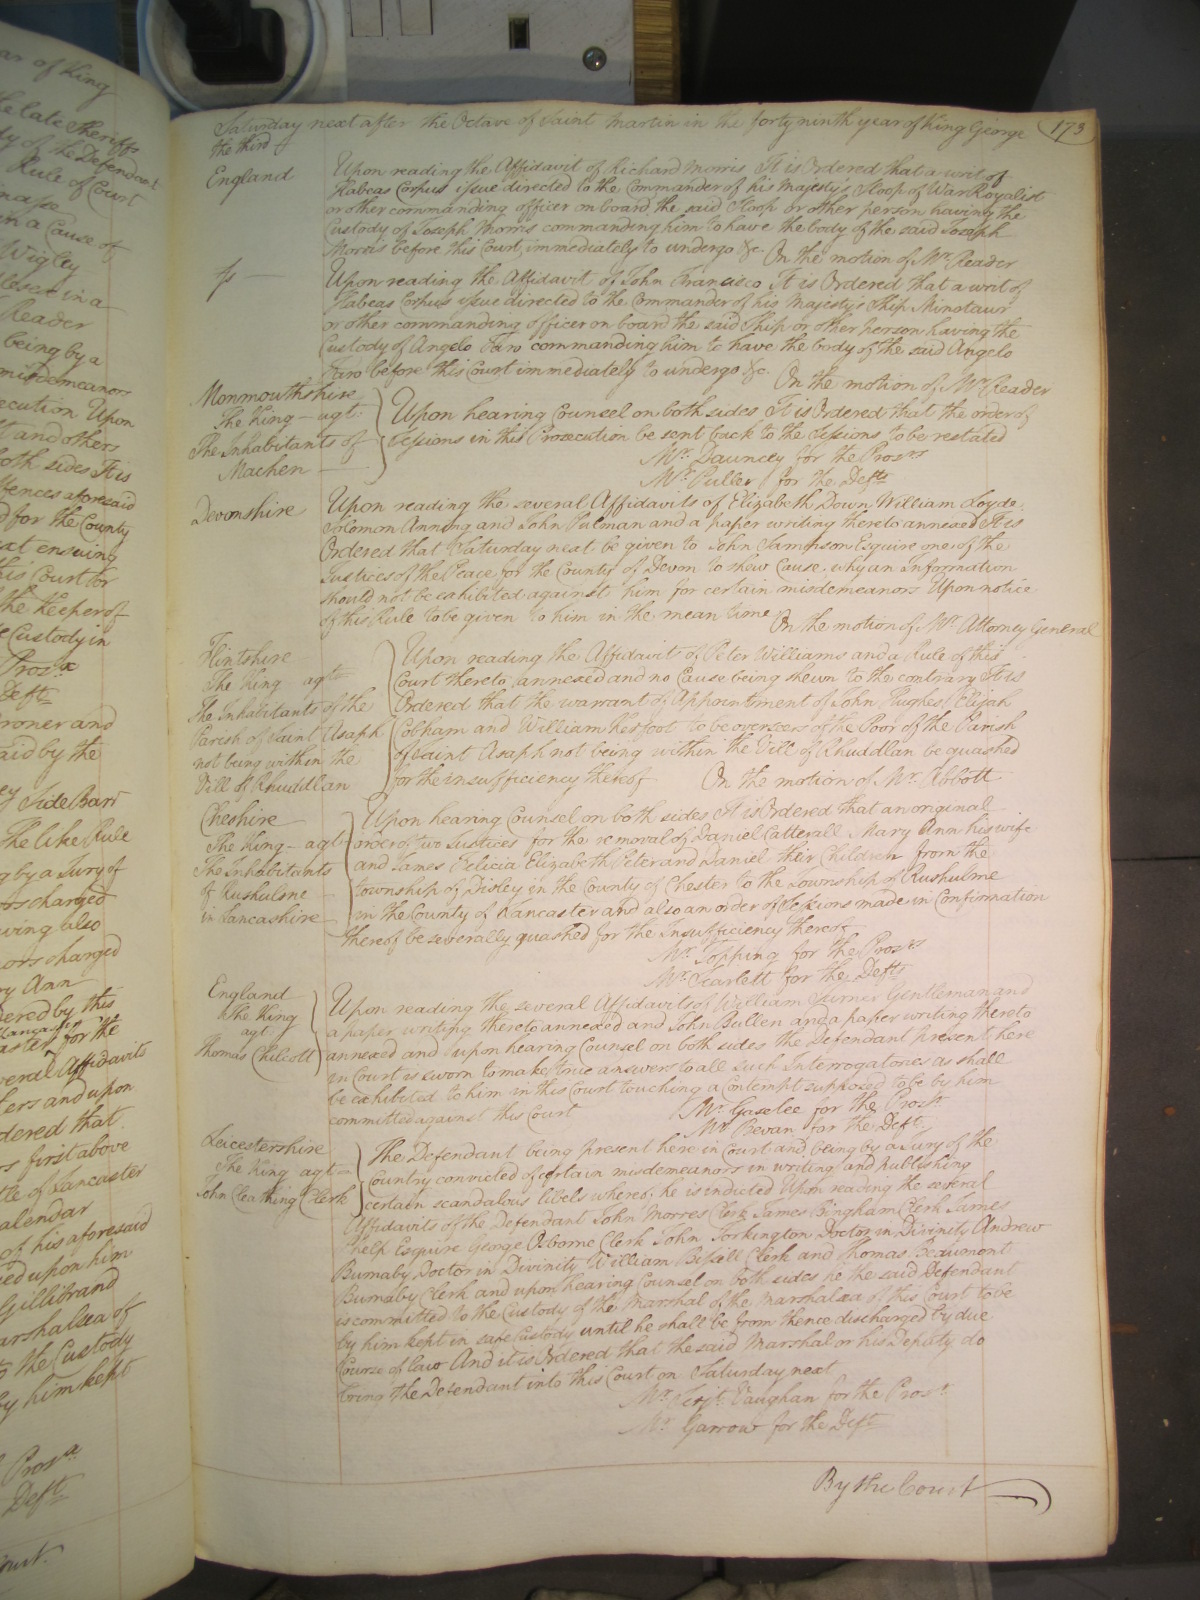 ar of King
the late Sheriffs
dy of the Defendant
Rule of Court
in a Cause of
Wigley
closed in a
Reader
being by a
misdemeanors
ecution Upon
t and others
both sides It is
ffences aforesaid
d for the County
ext ensuing
this Court for
the Keeper of
e Custody in
Prosr
Deft
roner and
aid by the
ey Side Barr
The like Rule
g by a Jury of
ors charged
ving also
ors charged
ry Ann
dered by this
Lancaster
aster for the
veral Affidavits
fers and upon
dered that
rs first above
tle of Lancaster
alendar
of his aforesaid
ied upon him
Gillibrand
arshalsea of
to the Custody
by him kept
Prosr
Deft
ourt.
Saturday next after the Octave of Saint Martin in the forty ninth year of King George 173
the third
England Upon reading the Affidavit of Richard Morris It is Ordered that a writ of
Habeas Corpus issue directed to the Commander of his Majesty's Sloop of War Royalist
or other commanding officer on board the said Sloop or other person having the
Custody of Joseph Morris commanding him to have the body of the said Joseph
Morris before this Court immediately to undergo &c. On the motion of Mr. Reader
Upon reading the Affidavit of John Francisco It is Ordered that a writ of
Habeas Corpus issue directed to the Commander of his Majesty's Ship Minotaur
or other commanding officer on board the said Ship or other person having the
Custody of Angelo Faro commanding him to have the body of the said Angelo
Faro before this Court immediately to undergo &c. On the motion of Mr. Reader
Monmouthshire
The King agt
The Inhabitants of
Machen
Upon hearing Counsel on both sides It is Ordered that the order of
Sessions in this Prosecution be sent back to the Sessions to be restated
Mr. Dauncey for the Prosrs
Mr. Puller for the Defts
Devonshire Upon reading the several Affidavits of Elizabeth Down William Loyde
Solomon Anning and John Pulman and a paper writing thereto annexed It is
Ordered that Saturday next be given to John Jaminson Esquire one of the
Justices of the Peace for the County of Devon to shew Cause why an Information
should not be exhibited against him for certain misdemeanors Upon notice
of this Rule to be given to him in the mean time On the motion of Mr. Attorney General
Flintshire
The King agt
The Inhabitants of the
Parish of Saint Asaph
not being within the
Vill of Rhuddlan
Upon reading the Affidavit of Peter Williams and a Rule of this
Court thereto annexed and no Cause being shewn to the contrary It is
Ordered that the warrant of Appointment of John Hughes Elijah
Cobham and William Kesfoot to be overseers of the Poor of the Parish
of Saint Asaph not being within the Vill of Rhuddlan be quashed
for the insufficiency thereof On the motion of Mr. Abbott
Cheshire
The King agt
The Inhabitants
of Rushulme
in Lancashire
Upon hearing Counsel on both sides It is Ordered that an original
order of two Justices for the removal of Daniel Catterall Mary Ann his wife
and James Felicia Elizabeth Peter and Daniel their Children from the
township of Disley in the County of Chester to the Township of Rushulme
in the County of Lancaster and also an order of Sessions made in Confirmation
thereof be severally quashed for the Insufficiency thereof
Mr. Topping for the Prosrs
Mr. Scarlett for the Defts
England
The King
agt
Thomas Chilcott
Upon reading the several Affidavits of William Turner Gentleman and
a paper writing thereto annexed and John Bullen and a paper writing thereto
annexed and upon hearing Counsel on both sides the Defendant present here
in Court is sworn to make true answers to all such Interrogatories as shall
be exhibited to him in this Court touching a Contempt supposed to be by him
committed against this Court Mr. Gaselee for the Prosr
Mr. Bevan for the Deft
Leicestershire
The King agt
John Cleathing Clerk
The Defendant being present here in Court and being by a Jury of the
Country convicted of certain misdemeanors in writing and publishing
certain scandalous libels whereof he is indicted Upon reading the several
Affidavits of the Defendant John Morres Clerk James Bingham Clerk James
Phelp Esquire George Osborne Clerk John Torkington Doctor in Divinity Andrew
Burnaby Doctor in Divinity William Bissill Clerk and Thomas Beaumont
Burnaby Clerk and upon hearing Counsel on both sides he the said Defendant
is committed to the Custody of the Marshal of the Marshalsea of this Court to be
by him kept in safe Custody until he shall be from thence discharged by due
Course of law And it is Ordered that the said Marshal or his Deputy do
bring the Defendant into this Court on Saturday next
Mr. Serjt. Vaughan for the Prosr
Mr. Garrow for the Deft
By the Court